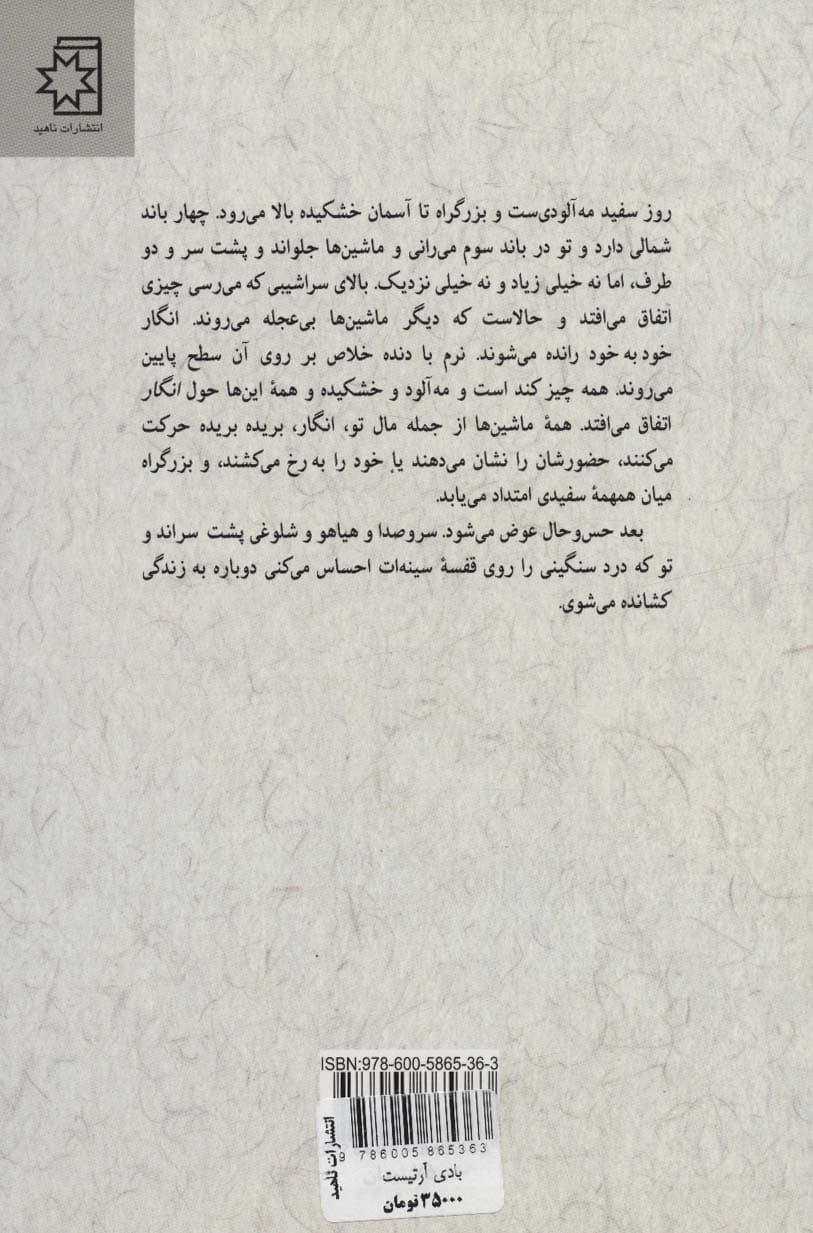 انتشارات ناهید
روز سفید مه‌آلودی‌ست و بزرگراه تا آسمان خشکیده بالا می‌رود. چهار باند
شمالی دارد و تو در باند سوم می‌رانی و ماشین‌ها جلواند و پشت سر و دو
طرف، اما نه خیلی زیاد و نه خیلی نزدیک. بالای سراشیبی که می‌رسی چیزی
اتفاق می‌افتد و حالاست که دیگر ماشین‌ها بی‌عجله می‌روند. انگار
خود به خود رانده می‌شوند. نرم با دنده خلاص بر روی آن سطح پایین
می‌روند. همه چیز کند است و مه‌آلود و خشکیده و همهٔ این‌ها حول انگار
اتفاق می‌افتد. همهٔ ماشین‌ها از جمله مال تو، انگار، بریده بریده حرکت
می‌کنند، حضورشان را نشان می‌دهند یا خود را به رخ می‌کشند، و بزرگراه
میان همهمهٔ سفیدی امتداد می‌یابد.
بعد حس‌وحال عوض می‌شود. سروصدا و هیاهو و شلوغی پشت سراند و
تو که درد سنگینی را روی قفسهٔ سینه‌ات احساس می‌کنی دوباره به زندگی
کشانده می‌شوی.
ISBN:978-600-5865-36-3
9 786005 865363
انتشارات ناهید
بادی آرتیست
۳۵۰۰۰ تومان